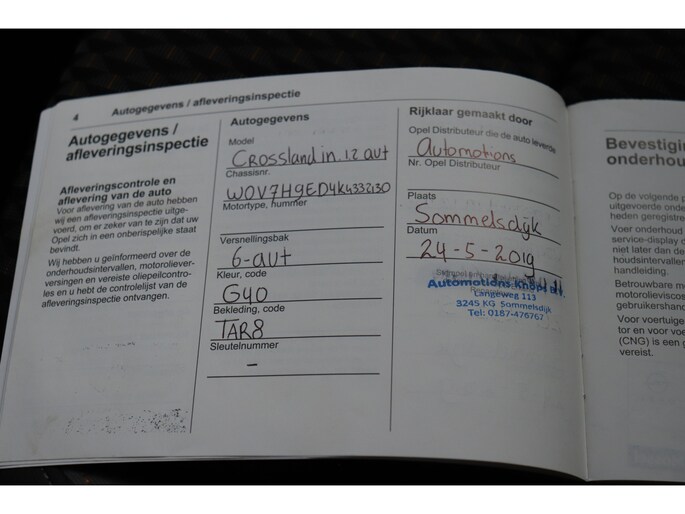 4 Autogegevens / afleveringsinspectie
Autogegevens /
afleveringsinspectie
Afleveringscontrole en
aflevering van de auto
Voor aflevering van de auto hebben
wij een afleveringsinspectie uitge-
voerd, om er zeker van te zijn dat uw
Opel zich in een onberispelijke staat
bevindt.
Wij hebben u geïnformeerd over de
onderhoudsintervallen, motoroliever-
versingen en vereiste oliepeilcontro-
les en u hebt de controlelijst van de
afleveringsinspectie ontvangen.
Autogegevens
Model
Crossland in. 1.2 aut
Chassisnr.
WOV7H9ED4K4332130
Motortype, nummer
Versnellingsbak
6-aut
Kleur, code
G40
Bekleding, code
TAR8
Sleutelnummer
-
Rijklaar gemaakt door
Opel Distributeur die de auto leverde
Automotions
Nr. Opel Distributeur
Plaats
Sommelsdijk
Datum
24-5-2019
Automotions Knöps B.V.
Langeweg 113
3245 KG Sommelsdijk
Tel: 0187-476767
Bevestigin
onderhou
Op de volgende p
uitgevoerde onde
heden geregistre
Voor onderhoud
service-display d
niet later dan de
houdsintervallen
handleiding.
Betrouwbare m
motorolieviscos
gebruikershand
Voor voertuige
tor en voor voe
(CNG) is een g
vereist.